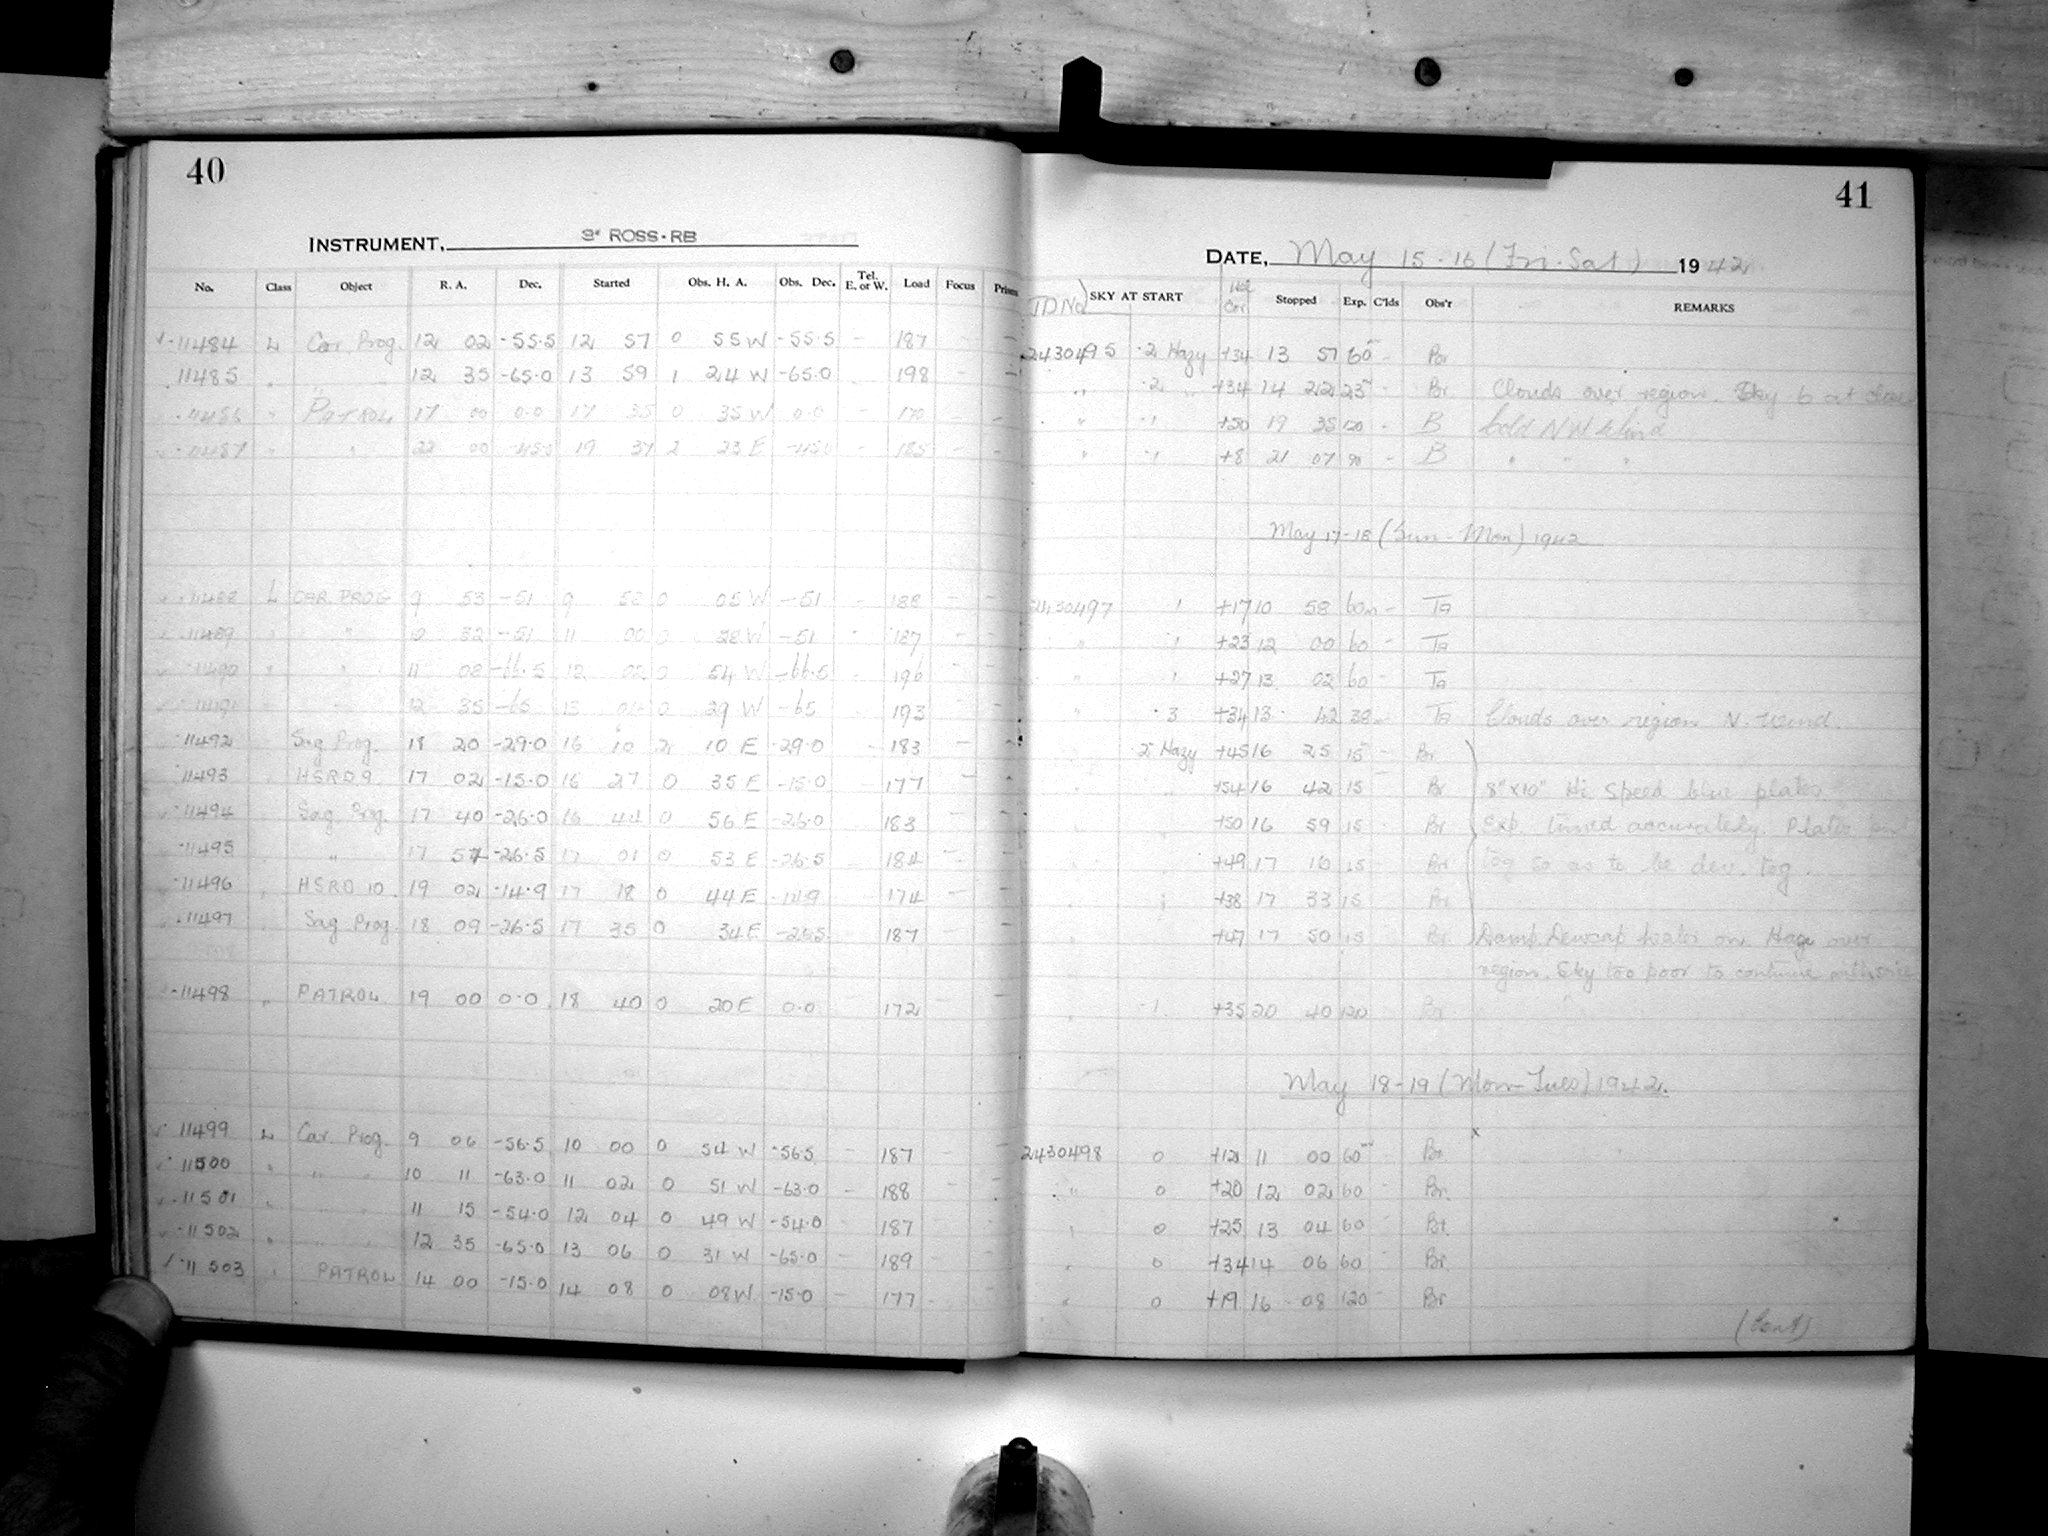 40
INSTRUMENT, 3" ROSS-RB
No. Class Object R. A. Dec. Started Obs. H. A. Obs. Dec. Tel. E. or W. Load Focus Prism
11484 L Car. Prog. 12 02 -55.5 12 57 0 55 W -55.5 - 187 - -
11485 " " " 12 35 -65.0 13 59 1 24 W -65.0 198 - -
11486 " PATROL 17 00 0.0 17 35 0 35 W 0.0 - 170 - -
11487 " " 22 00 -45.0 19 37 2 23 E -45.0 - 185 - -
11488 L CAR. PROG 9 53 -51 9 58 0 05 W -51 - 188 - -
11489 " " 10 32 -51 11 00 0 28 W -51 - 187 - -
11490 " " 11 08 -66.5 12 02 0 54 W -66.5 - 196 - -
11491 12 35 -65 13 04 0 29 W -65 193
11492 Sag Prog. 18 20 -29.0 16 10 2 10 E -29.0 - 183 -
11493 HSRD 9 17 02 -15.0 16 27 0 35 E -15.0 - 177 -
11494 Sag. Prog. 17 40 -26.0 16 44 0 56 E -26.0 183 -
11495 " " 17 57 -26.5 17 01 0 53 E -26.5 184 -
11496 HSRD 10 19 02 -14.9 17 18 0 44 E -14.9 - 174 -
11497 Sag Prog. 18 09 -26.5 17 35 0 34 E -26.5 187 -
11498 " PATROL 19 00 0.0 18 40 0 20 E 0.0 - 172 -
11499 L Car. Prog. 9 06 -56.5 10 00 0 54 W -56.5 - 187 - -
11500 " " " 10 11 -63.0 11 02 0 51 W -63.0 - 188 - -
11501 " " " 11 15 -54.0 12 04 0 49 W -54.0 - 187 - -
11502 " " " 12 35 -65.0 13 06 0 31 W -65.0 - 189 - -
11503 " PATROL 14 00 -15.0 14 08 0 08 W -15.0 - 177 - -
41
DATE, May 15-16 (Fri-Sat) 1942
JD No. SKY AT START Cor. Stopped Exp. C'lds Obs'r REMARKS
2430495 .2 Hazy +34 13 57 60 - Br
" .2 " +34 14 22 23 - Br Clouds over region. Sky 6 at close
" .1 +50 19 35 120 - B Cold N W Wind
" .1 +8 21 07 90 - B " " "
May 17-18 (Sun-Mon) 1942
2430497 1 +17 10 58 60m - Ta
" 1 +23 12 00 60 - Ta
" 1 +27 13 02 60 - Ta
" .3 +34 13 42 38 - Ta Clouds over region N. Wind.
2 Hazy +45 16 25 15 - Br
+54 16 42 15 - Br 8"x10" Hi Speed blue plates.
+50 16 59 15 - Br Exp. timed accurately. Plates put
+49 17 16 15 - Br tog so as to be dev. tog.
+38 17 33 15 Br
+47 17 50 15 Br Damp. Dewcap heater on. Haze over
region. Sky too poor to continue with series
" .1 +35 20 40 120 Br
May 18-19 (Mon-Tues) 1942.
x
2430498 0 +12 11 00 60 - Br.
" 0 +20 12 02 60 - Br.
" 0 +25 13 04 60 - Br.
" 0 +34 14 06 60 - Br.
" 0 +19 16 08 120 - Br
(Cont)